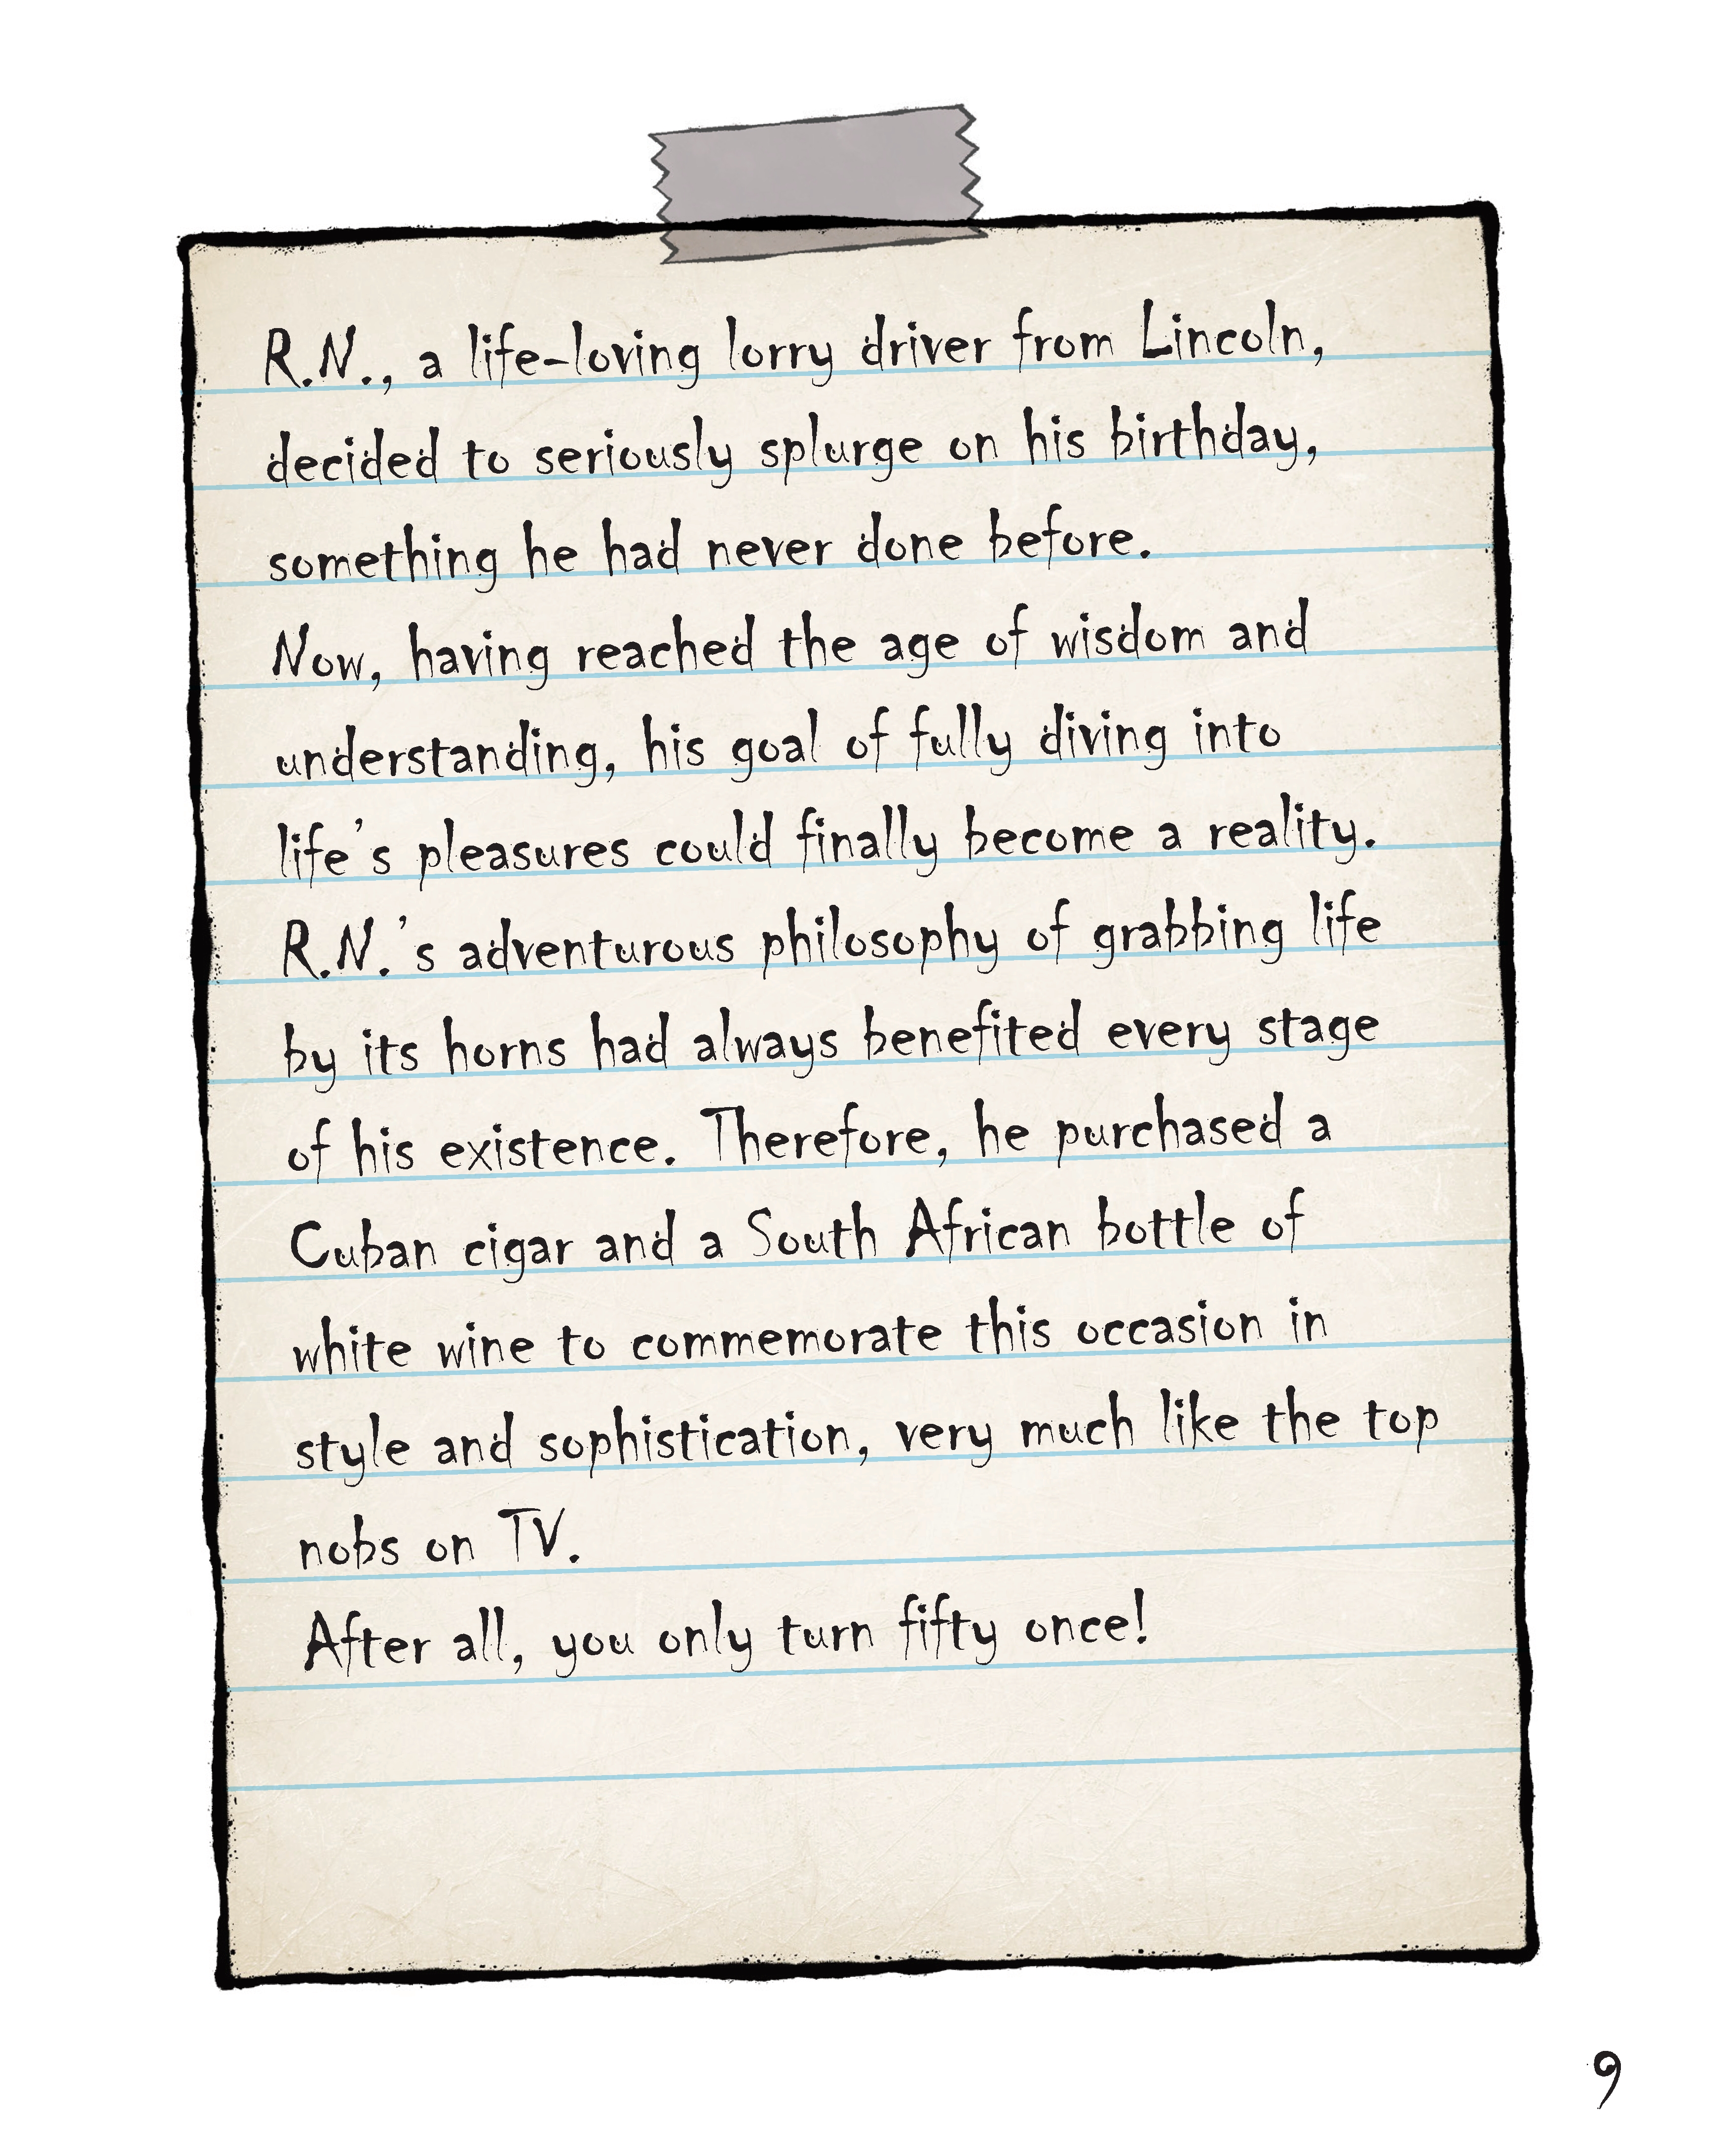 R.N., a life-loving lorry driver from Lincoln,
decided to seriously splurge on his birthday,
something he had never done before.
Now, having reached the age of wisdom and
understanding, his goal of fully diving into
life's pleasures could finally become a reality.
R.N.'s adventurous philosophy of grabbing life
by its horns had always benefited every stage
of his existence. Therefore, he purchased a
Cuban cigar and a South African bottle of
white wine to commemorate this occasion in
style and sophistication, very much like the top
nobs on TV.
After all, you only turn fifty once!
9